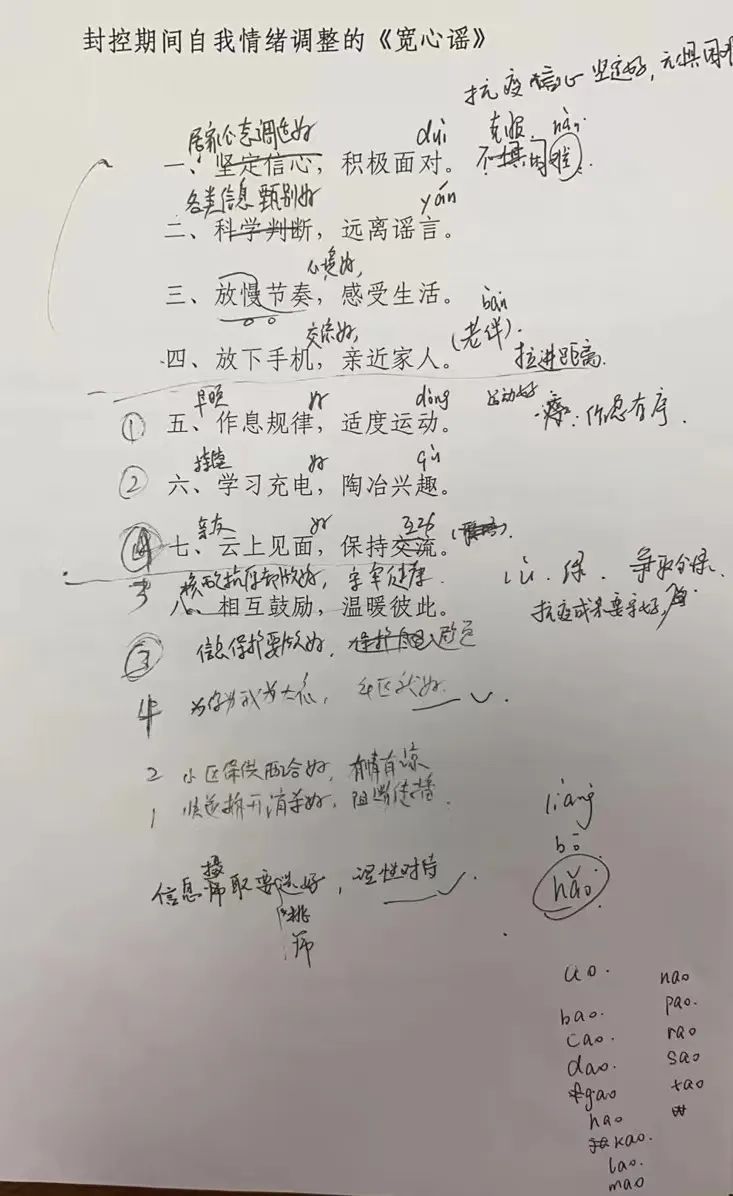 封控期间自我情绪调整的《宽心谣》
抗疫信心坚定好，无惧困难
居家心态调适好 duì 克服 nàn
一、坚定信心，积极面对。不惧困难.
各类信息甄别好 yán
二、科学判断，远离谣言。
心境好，
三、放慢节奏，感受生活。
交流好， bàn
四、放下手机，亲近家人。(老伴). 拉进距离.
好 dòng 运动好
① 五、作息规律，适度运动。 作息有序.
好 qù
② 六、学习充电，陶冶兴趣。
亲友 好 互动
④ 七、云上见面，保持交流。
核酸抗原都做好，牢牢健康. lǜ. 绿. 争取全绿.
3 八、相互鼓励，温暖彼此。 抗疫成果要守好,
③ 信息保护要做好，
4 为你为我为大伙， 社区我好.
2 小区保供配合好，有情有谅
1 快递拆开消杀好，阻断传播. liàng
bō
摄
信息筛取要选好，理性对待. hǎo
挑
筛
ao. nao
bao. pao.
cao. rao
dao. sao
gao tao
hao
kao.
lao.
mao